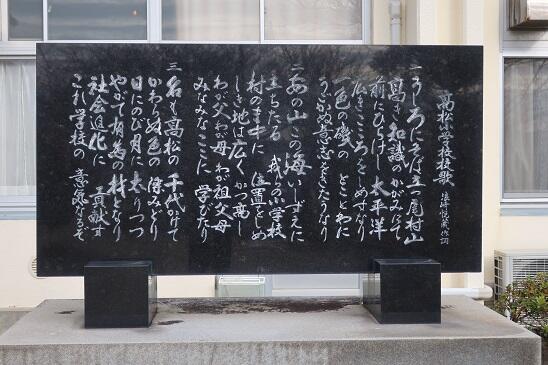 高松小学校校歌
一 うしろにそば立つ尾村山
高き知識のかがみにて
前にひらけし太平洋
広きこころをめすなり
一色の磯の とことわに
うごかぬ意志をきたうなり
二 あの山この海 いしずえに
立ちたる 我らの小学校
村のま中に 位置をしめ
しき地は広く かつ高し
わが父わが母 わが祖父母
みなみなここに 学びたり
三 名も高松の 千代かけて
かわらぬ色の 深みどり
日にのび月に 太りつつ
やがて有為の 材となり
社会進化に 貢献す
これ学校の 意気なるぞ